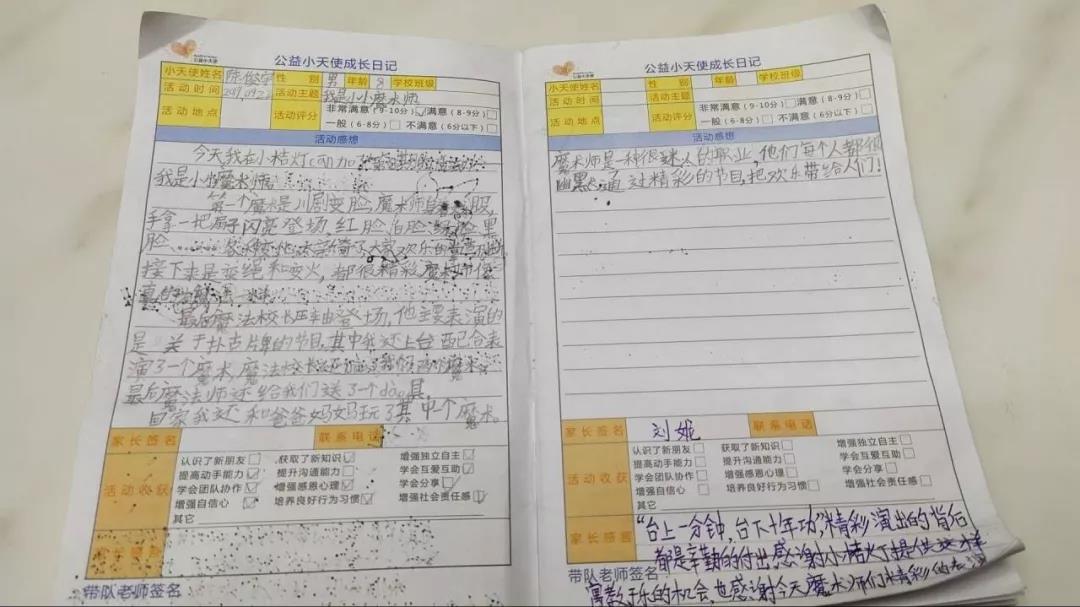 公益小天使成长日记
小天使姓名 陈俊宇 性别 男 年龄 8 学校班级
活动时间 活动主题 我是小小魔术师
活动地点 活动评分 非常满意(9-10分) 满意(8-9分)
一般(6-8分) 不满意(6分以下)
活动感想
今天我在小桔灯
我是小小魔术师。
第一个魔术是川剧变脸,魔术师
手拿一把扇子闪亮登场,红脸 白脸 黑
脸……
接下来是变绳和变火,都很精彩,魔术师像
真的
最后魔法校长压轴登场,他主要表演的
是关于扑克牌的节目,其中我还上台配合表
演了一个魔术,魔法校长还
最后魔法师还给我们送了一个dao具,
回家我还和爸爸妈妈玩了其中个魔术。
家长签名 联系电话
认识了新朋友 获取了新知识 增强独立自主
提高动手能力 提升沟通能力 学会互爱互助
活动收获 学会团队协作 增强感恩心理 学会分享
增强自信心 培养良好行为习惯 增强社会责任感
其它
带队老师签名
公益小天使成长日记
小天使姓名 性别 年龄 学校班级
活动时间 活动主题
活动地点 活动评分 非常满意(9-10分) 满意(8-9分)
一般(6-8分) 不满意(6分以下)
活动感想
魔术师是一种很迷人的职业,他们每个人都很
幽默,通过精彩的节目,把欢乐带给人们!
家长签名 刘妮 联系电话
认识了新朋友 获取了新知识 增强独立自主
提高动手能力 提升沟通能力 学会互爱互助
活动收获 学会团队协作 增强感恩心理 学会分享
增强自信心 培养良好行为习惯 增强社会责任感
其它
家长感言 “台上一分钟,台下十年功”,精彩演出的背后
都是辛勤的付出,感谢小桔灯提供这样
带队老师签名 寓教于乐的机会,也感谢今天魔术师们精彩的表演